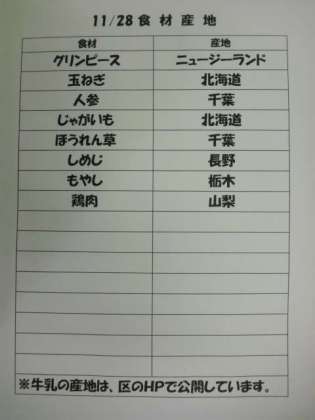 11/28食材産地
食材 産地
グリンピース ニュージーランド
玉ねぎ 北海道
人参 千葉
じゃがいも 北海道
ほうれん草 千葉
しめじ 長野
もやし 栃木
鶏肉 山梨
※牛乳の産地は、区のHPで公開しています。